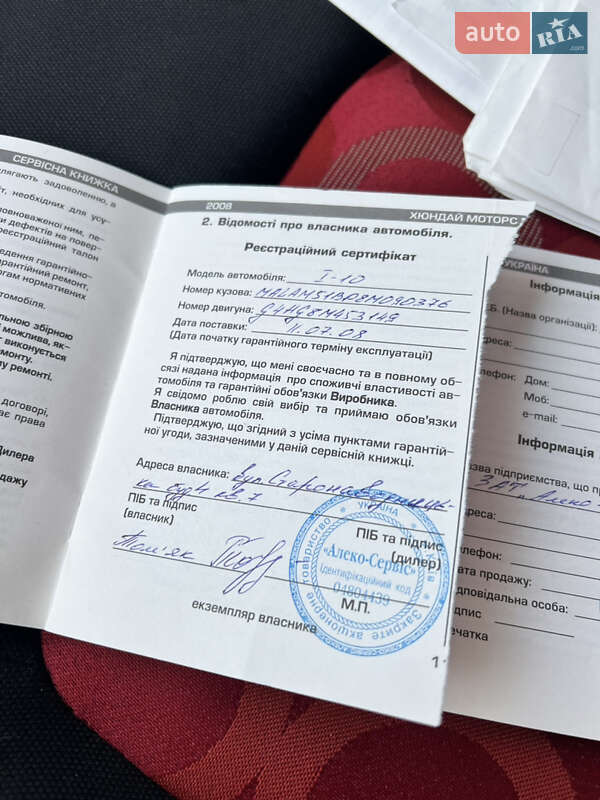 auto RIA .com
СЕРВІСНА КНИЖКА
лягають задоволенню, а
т, необхідних для усу-
овноваженої ним, пе-
и дефектів на повер-
реєстраційний талон
ведення гарантійно-
гарантійний ремонт,
огам нормативних
льною збірною
можлива, як-
г виконується
монту.
му ремонті.
договорі,
ає права
Дилера
одажу
2008 ХЮНДАЙ МОТОРС
2. Відомості про власника автомобіля.
Реєстраційний сертифікат
Модель автомобіля: I-10
Номер кузова: MALAM51BP8M090376
Номер двигуна: G4HG8M453149
Дата поставки: 11.07.08
(Дата початку гарантійного терміну експлуатації)
Я підтверджую, що мені своєчасно та в повному об-
сязі надана інформація про споживчі властивості ав-
томобіля та гарантійні обов'язки Виробника.
Я свідомо роблю свій вибір та приймаю обов'язки
Власника автомобіля.
Підтверджую, що згідний з усіма пунктами гарантій-
ної угоди, зазначеними у даній сервісній книжці.
Адреса власника: вул
буд 4 кв. 7
ПІБ та підпис
(власник)
ПІБ та підпис
(дилер)
М.П.
екземпляр власника
1
УКРАЇНА
Закрите акціонерне товариство
«Алеко-Сервіс»
Ідентифікаційний код
04804439
УКРАЇНА
Інформація
ІБ. (Назва організації):
дреса:
елефон: Дом:
Моб:
e-mail:
Інформація
азва підприємства, що пр
ЗАТ "Алеко-
дреса:
елефон:
ата продажу:
ідповідальна особа:
ідпис
ечатка